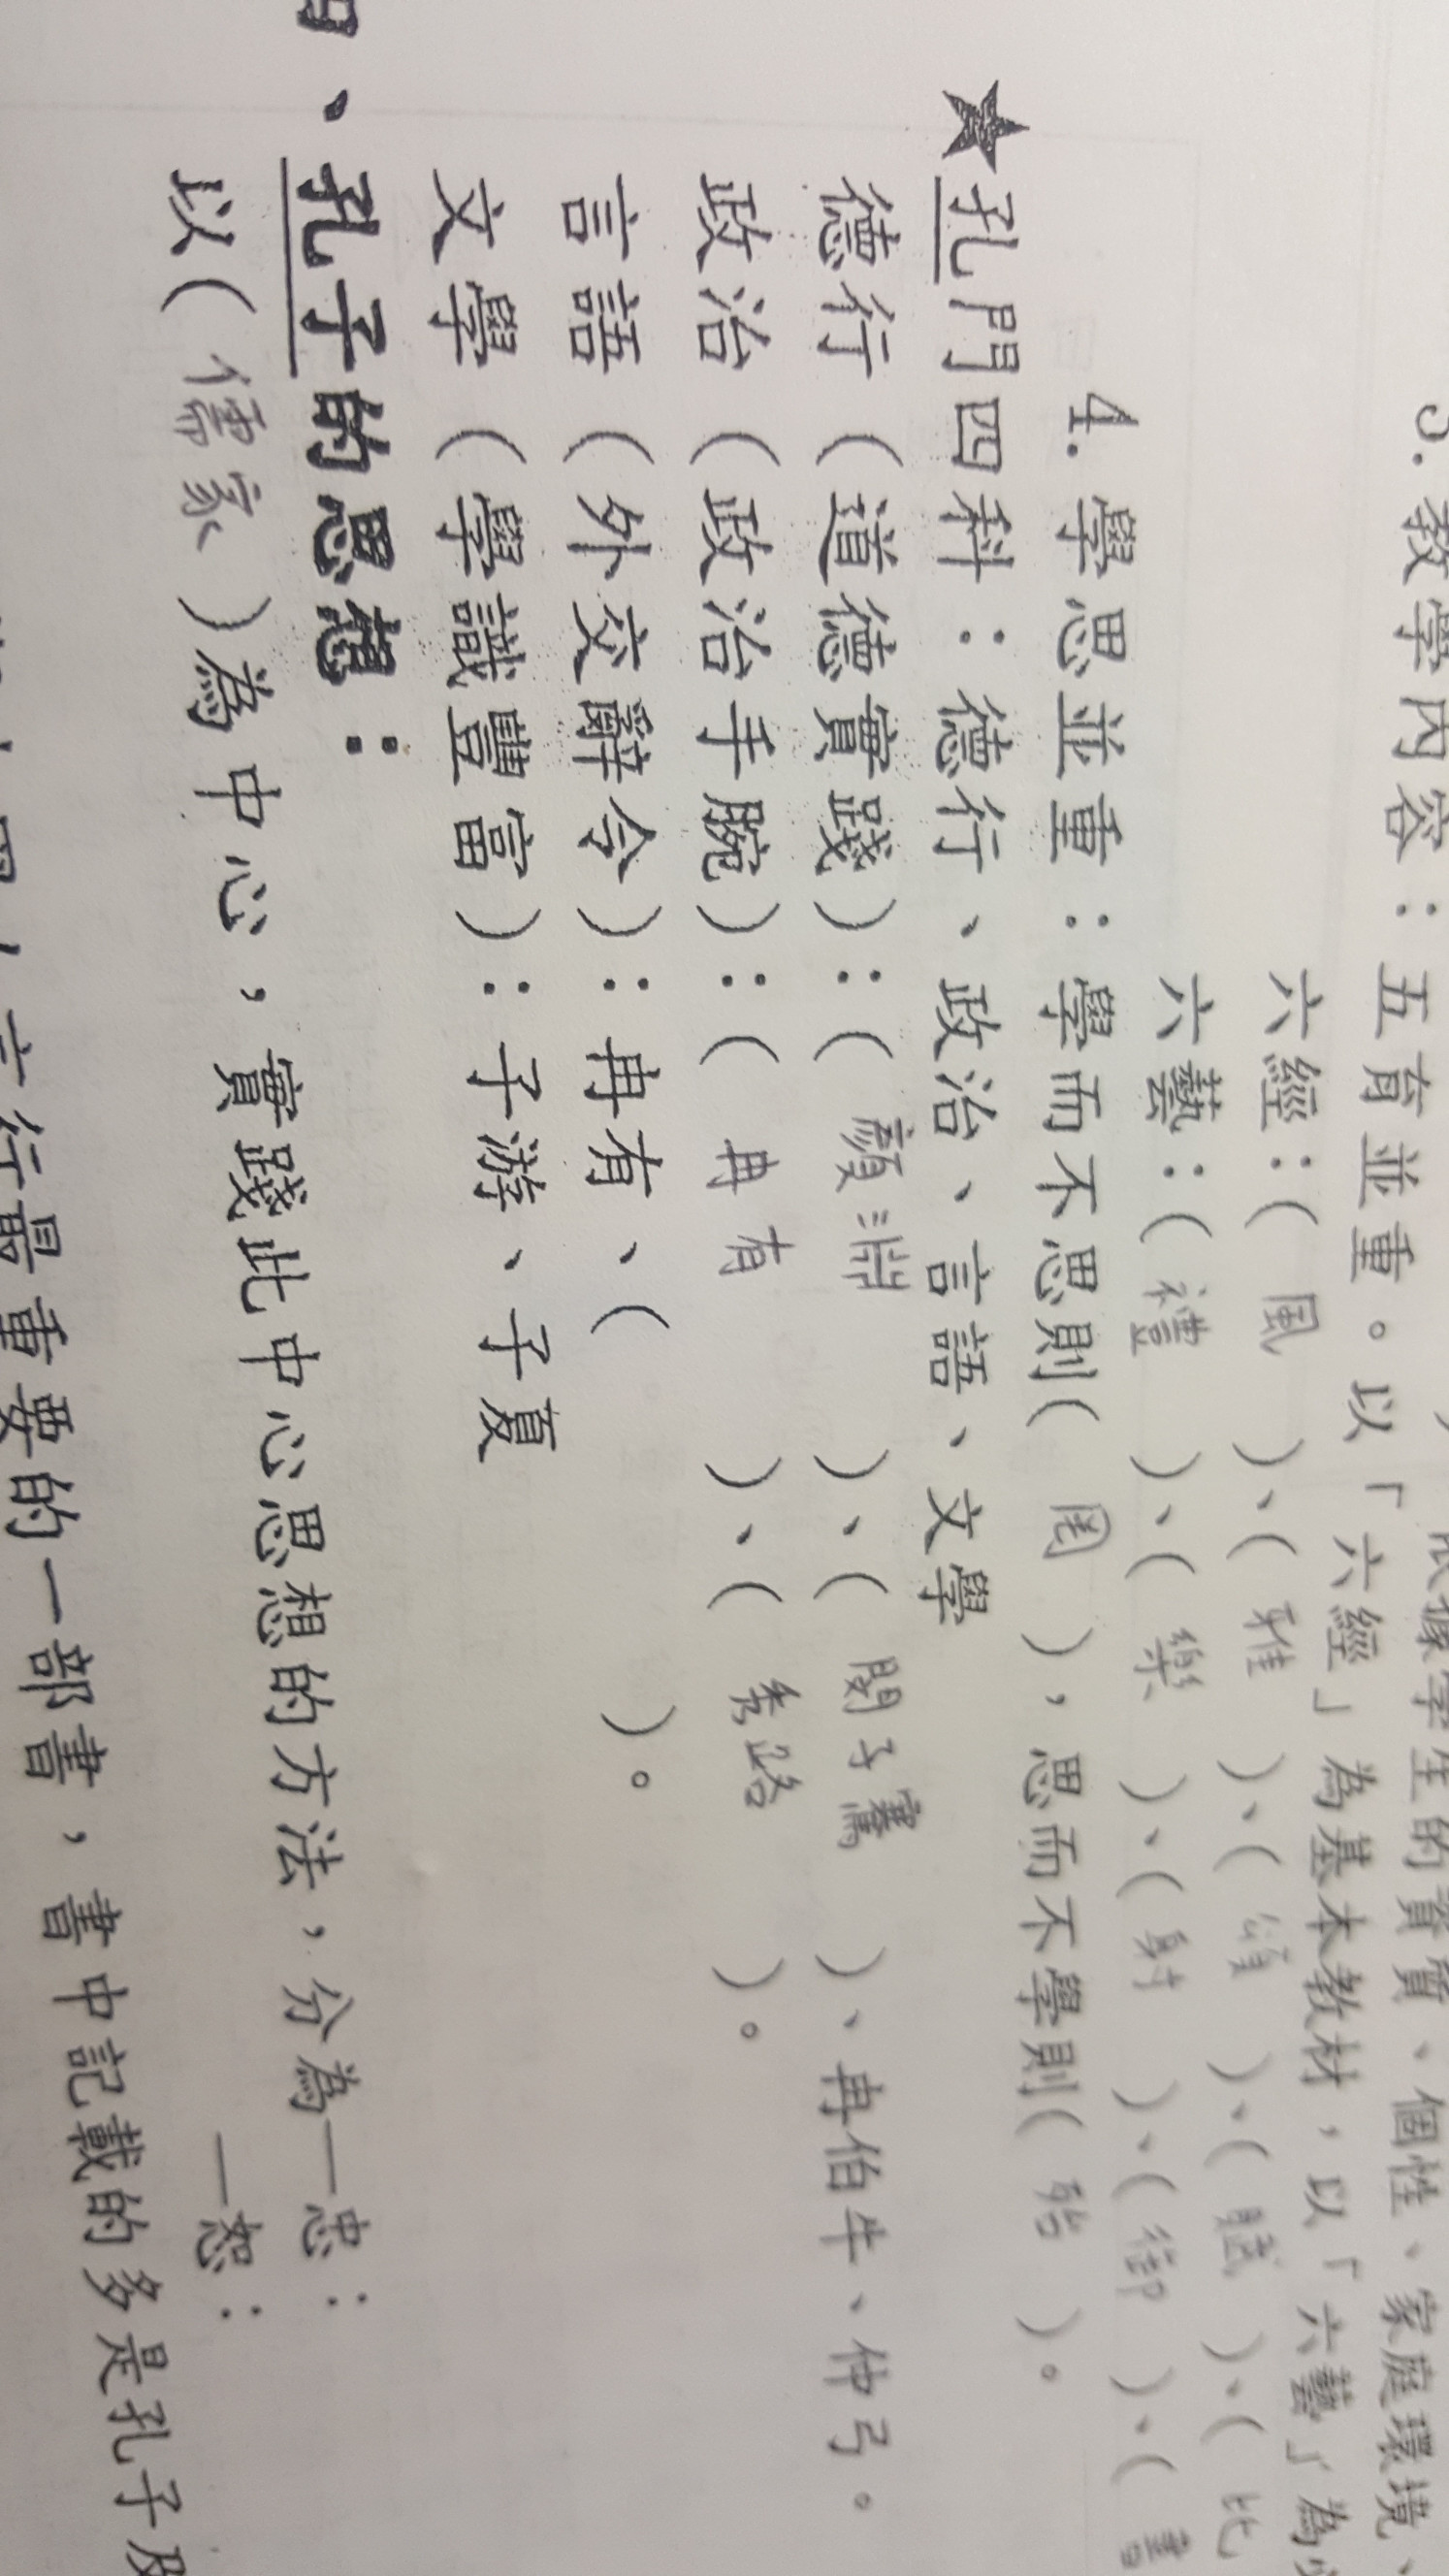 依據學生的資質、個性、家庭環境、
3.教學內容：五育並重。以「六經」為基本教材，以「六藝」為
六經：( 風 )、( 雅 )、( 頌 )、( 賦 )、( 比
六藝：( 禮 )、( 樂 )、( 射 )、( 御 )、( 書
4.學思並重：學而不思則( 罔 )，思而不學則( 殆 )。
★孔門四科：德行、政治、言語、文學
德行（道德實踐）：( 顏淵 )、( 閔子騫 )、冉伯牛、仲弓。
政治（政治手腕）：( 冉有 )、( 季路 )。
言語（外交辭令）：冉有、( )。
文學（學識豐富）：子游、子夏
、孔子的思想：
以( 儒家 )為中心，實踐此中心思想的方法，分為—忠：
—恕：
言行最重要的一部書，書中記載的多是孔子及